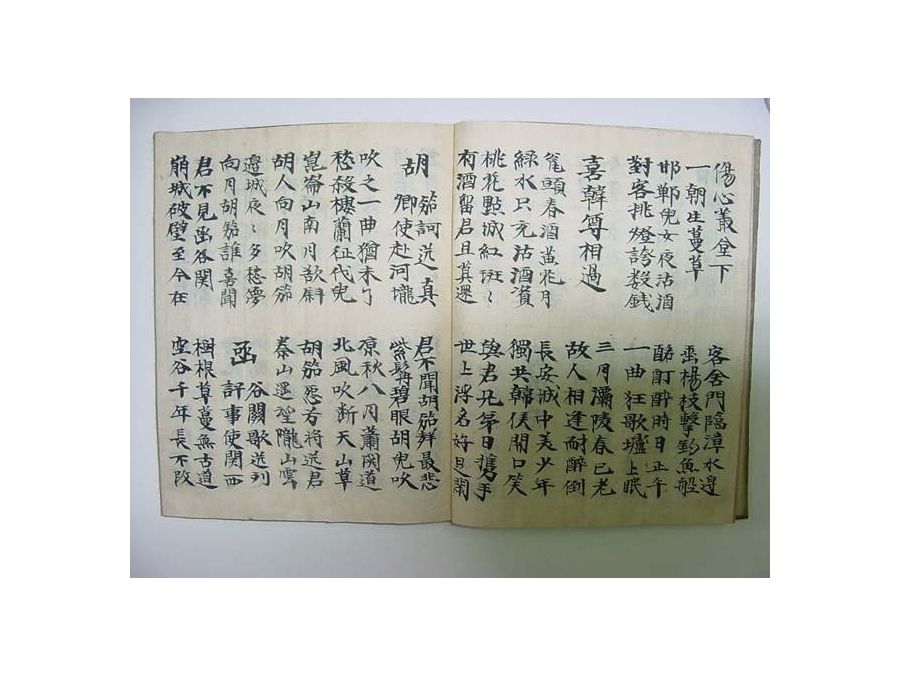 傷心叢臺下
一朝生蔓草
客舍門臨漳水邊
垂楊枝繫釣魚船
邯鄲兒女夜沽酒
對客挑燈誇數錢
酩酊醉時日正午
一曲狂歌壚上眠
喜韓尊相過
三月灞陵春已老
故人相逢耐醉倒
甕頭春酒黃花月
綠水只充沽酒資
長安城中美少年
獨共韓侯開口笑
桃花點城紅斑〻
有酒留君且莫還
與君兄弟日攜手
世上浮名好是閑
胡笳詞送真
卿使赴河隴
君不聞胡笳聲最悲
紫髯碧眼胡兒吹
吹之一曲猶未了
愁殺樓蘭征戍兒
涼秋八月蕭関道
北風吹断天山草
崑崙山南月欲斜
胡人向月吹胡笳
胡笳怨兮將送君
秦山遥望隴山雲
邊城夜〻多愁夢
向月胡笳誰喜聞
函谷關歌送列
評事使関西
君不見函谷関
崩城破壁至今在
樹根草蔓無古道
空谷千年長不改